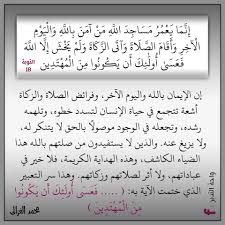 إِنَّمَا يَعْمُرُ مَسَاجِدَ اللَّهِ مَنْ آمَنَ بِاللَّهِ وَالْيَوْمِ
الْآخِرِ وَأَقَامَ الصَّلَاةَ وَآتَى الزَّكَاةَ وَلَمْ يَخْشَ إِلَّا اللَّهَ
فَعَسَى أُولَئِكَ أَنْ يَكُونُوا مِنَ الْمُهْتَدِينَ التوبة
18
إن الإيمان بالله واليوم الآخر، وفرائض الصلاة والزكاة
أشعة تتجمع في حياة الإنسان لتسدد خطوه، وتلهمه
رشده، وتجعله في الوجود موصولا بالحق لا يتنكر له،
ولا يزيغ عنه. والذين لا يستفيدون من صلتهم بالله هذا
الضياء الكاشف، وهذه الهداية الكريمة، فلا خير في
عباداتهم، ولا أثر لصلاتهم وزكاتهم. وهذا سر التعبير
الذي ختمت الآية به: ( ..... فَعَسَى أُولَئِكَ أَنْ يَكُونُوا
مِنَ الْمُهْتَدِينَ )
محمد الغزالي